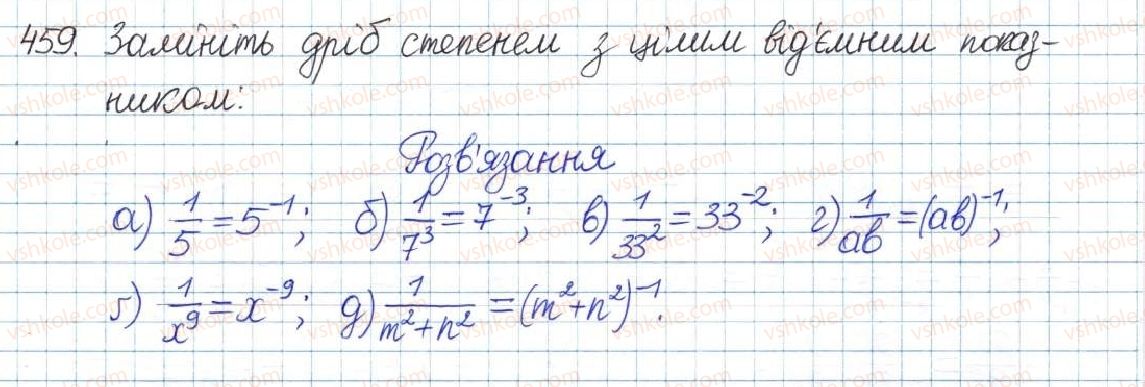 459. Замініть дріб степенем з цілим від'ємним показ-
ником:
Розв'язання
а) 1/5 = 5^{-1}; б) 1/7^3 = 7^{-3}; в) 1/33^2 = 33^{-2}; г) 1/ab = (ab)^{-1};
ґ) 1/x^9 = x^{-9}; д) 1/(m^2+n^2) = (m^2+n^2)^{-1}.